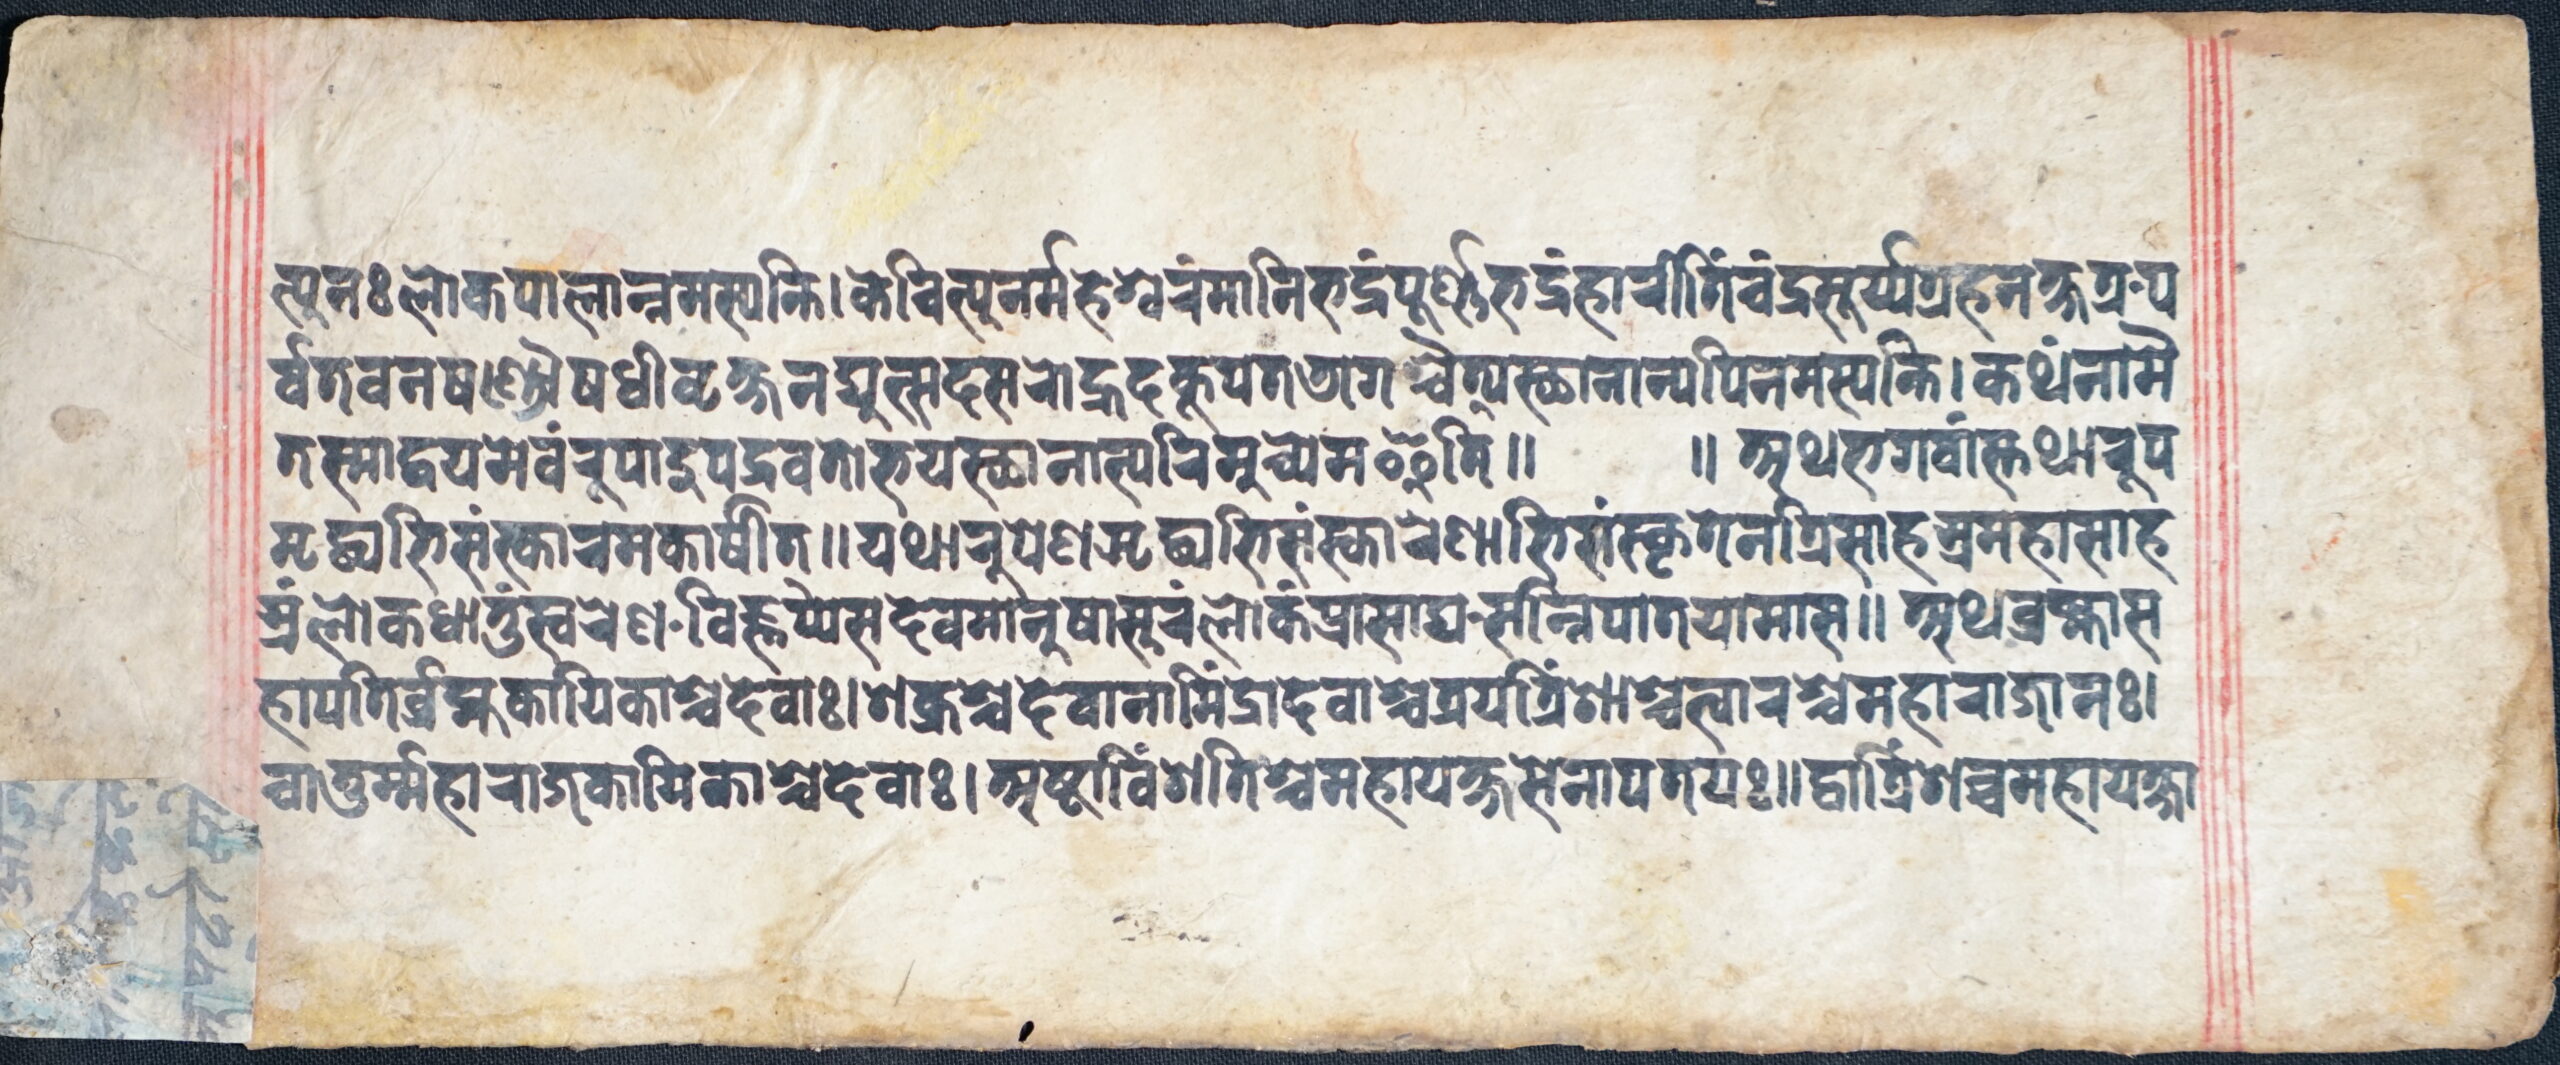 त्पुनः लोकपालान्नमस्यन्ति । केचित्पुनर्महेश्वरंमानिभद्रंपूर्ण्णभद्रंहारीतिंचंद्रसूर्य्यग्रहनक्षत्र-प
र्वतवनषण्डौषधीवृक्षनद्युत्सदसरोह्रदकूपतडागश्चैत्यस्थानान्यपिनमस्यन्ति । कथंनामै
तस्माद्वयमेवंरुपादुपद्रवतोभयस्थानात्परिमुच्येमइति ॥ ॥ अथभगवांस्तथारुप
मृद्ध्यभिसंस्कारमकार्षीत् ॥ यथारुपेणऋद्ध्यभिसंस्कारेणाभिसंस्कृतेनत्रिसाहस्रमहासाह
स्रंलोकधातुंस्वरेण-विज्ञप्यसदेवमानुषासुरंलोकंप्रासाद्य-सन्निपातयामास ॥ अथब्रह्मास
हापतिर्ब्रह्मकायिकाश्चदेवाः । शक्रश्चदेवानामिंद्रोदेवाश्चत्रयत्रिंशाश्चत्वारश्चमहाराजानः ।
चातुर्म्महाराजकायिकाश्चदेवाः । अष्टाविंशतिश्चमहायक्षसेनापतयः ॥ द्वात्रिंशच्चमहायक्षा